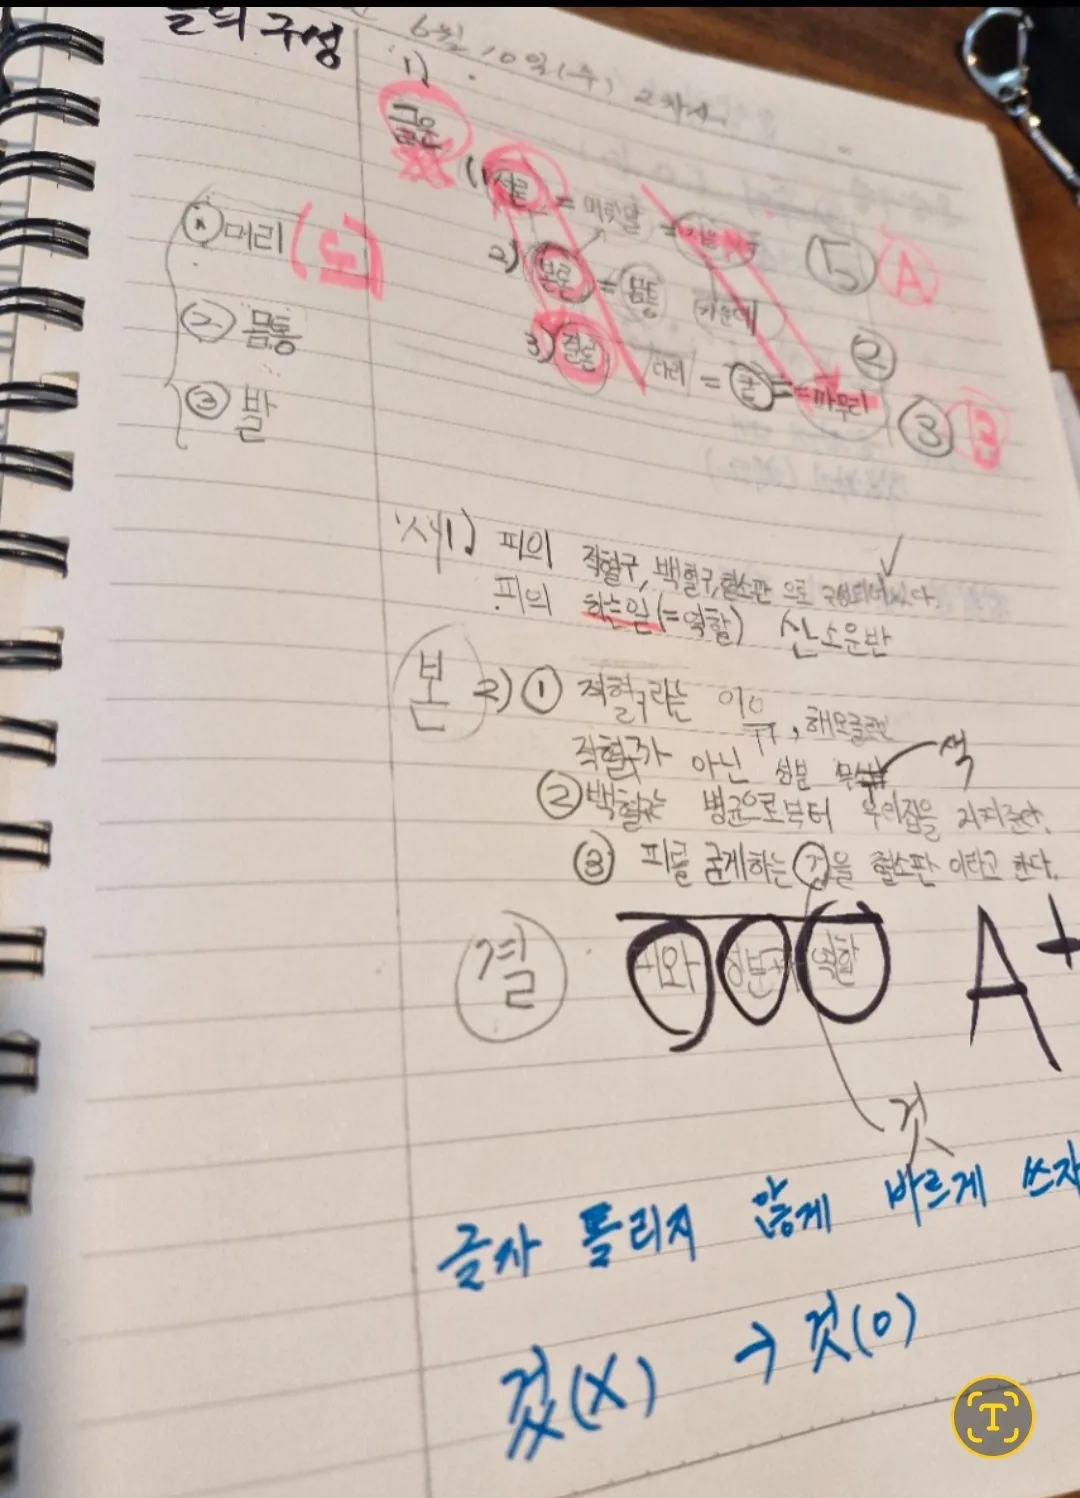 글의 구성
6월 10일(수) 2차시
1)
글은
1) 서론 = 머릿말 =
2) 본론 = 몸통 가운데
3) 결론 다리 = 끝 = 마무리
⑤ A
②
③
① 머리
② 몸통
③ 발
서1) 피의 적혈구, 백혈구, 혈소판 으로 구성되어있다.
피의 하는일(=역할) 산소운반
본 2) ① 적혈구라는 이유, 해모글로빈
적혈구가 아닌 성분 무색
색
② 백혈구는 병균으로부터 우리집을 지켜준다.
③ 피를 굳게하는 것을 혈소판 이라고 한다.
결 피와 성분과 역할
A+
것
글자 틀리지 않게 바르게 쓰자
겄(X) → 것(O)